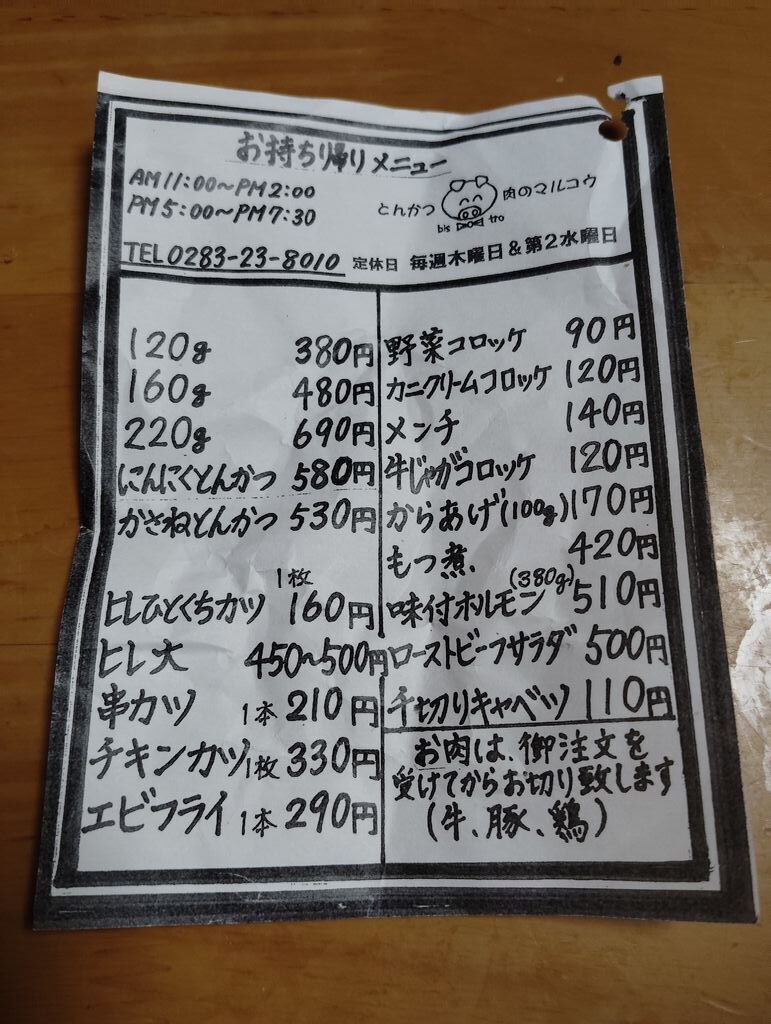 お持ち帰りメニュー
AM11:00〜PM2:00
PM5:00〜PM7:30
とんかつ 肉のマルコウ
bis tro
TEL0283-23-8010 定休日 毎週木曜日&第2水曜日
120g 380円
160g 480円
220g 690円
にんにくとんかつ 580円
かさねとんかつ 530円
1枚
ヒレひとくちカツ 160円
ヒレ大 450〜500円
串カツ 1本 210円
チキンカツ 1枚 330円
エビフライ 1本 290円
野菜コロッケ 90円
カニクリームコロッケ 120円
メンチ 140円
牛じゃがコロッケ 120円
からあげ(100g) 170円
もつ煮 420円
味付ホルモン(380g) 510円
ローストビーフサラダ 500円
千切りキャベツ 110円
お肉は、御注文を
受けてからお切り致します
(牛、豚、鶏)